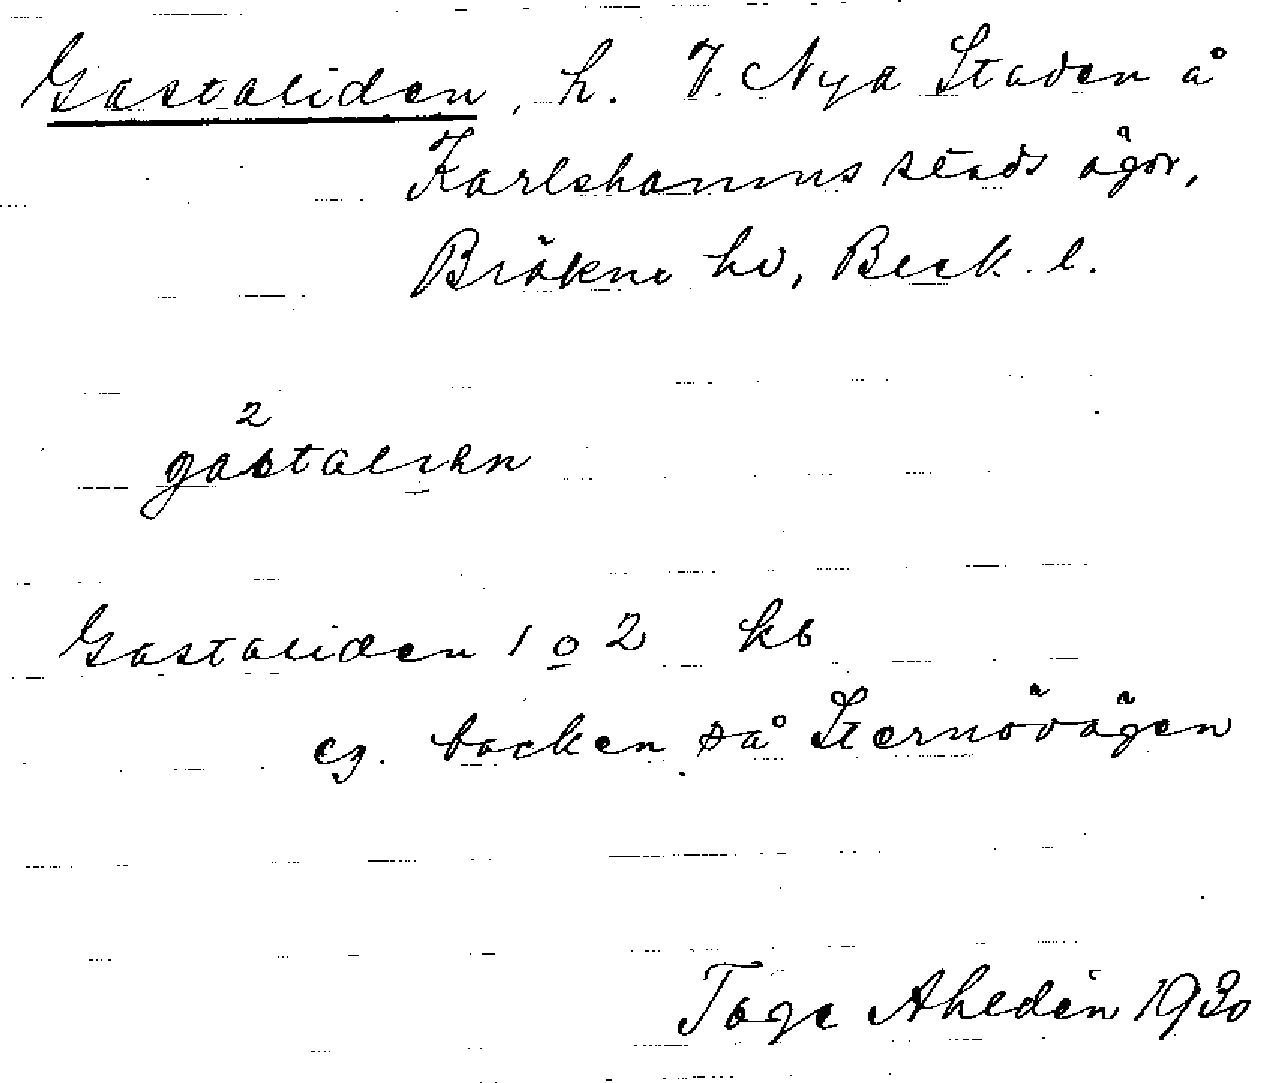 Gastaliden, h. V. Nya Staden å
Karlshamns stads ägor,
Bräkne hd, Blek. l.
2
gastalien
Gastaliden 1 o 2 kb
eg. backen på Sternövägen
Tage Ahldén 1930